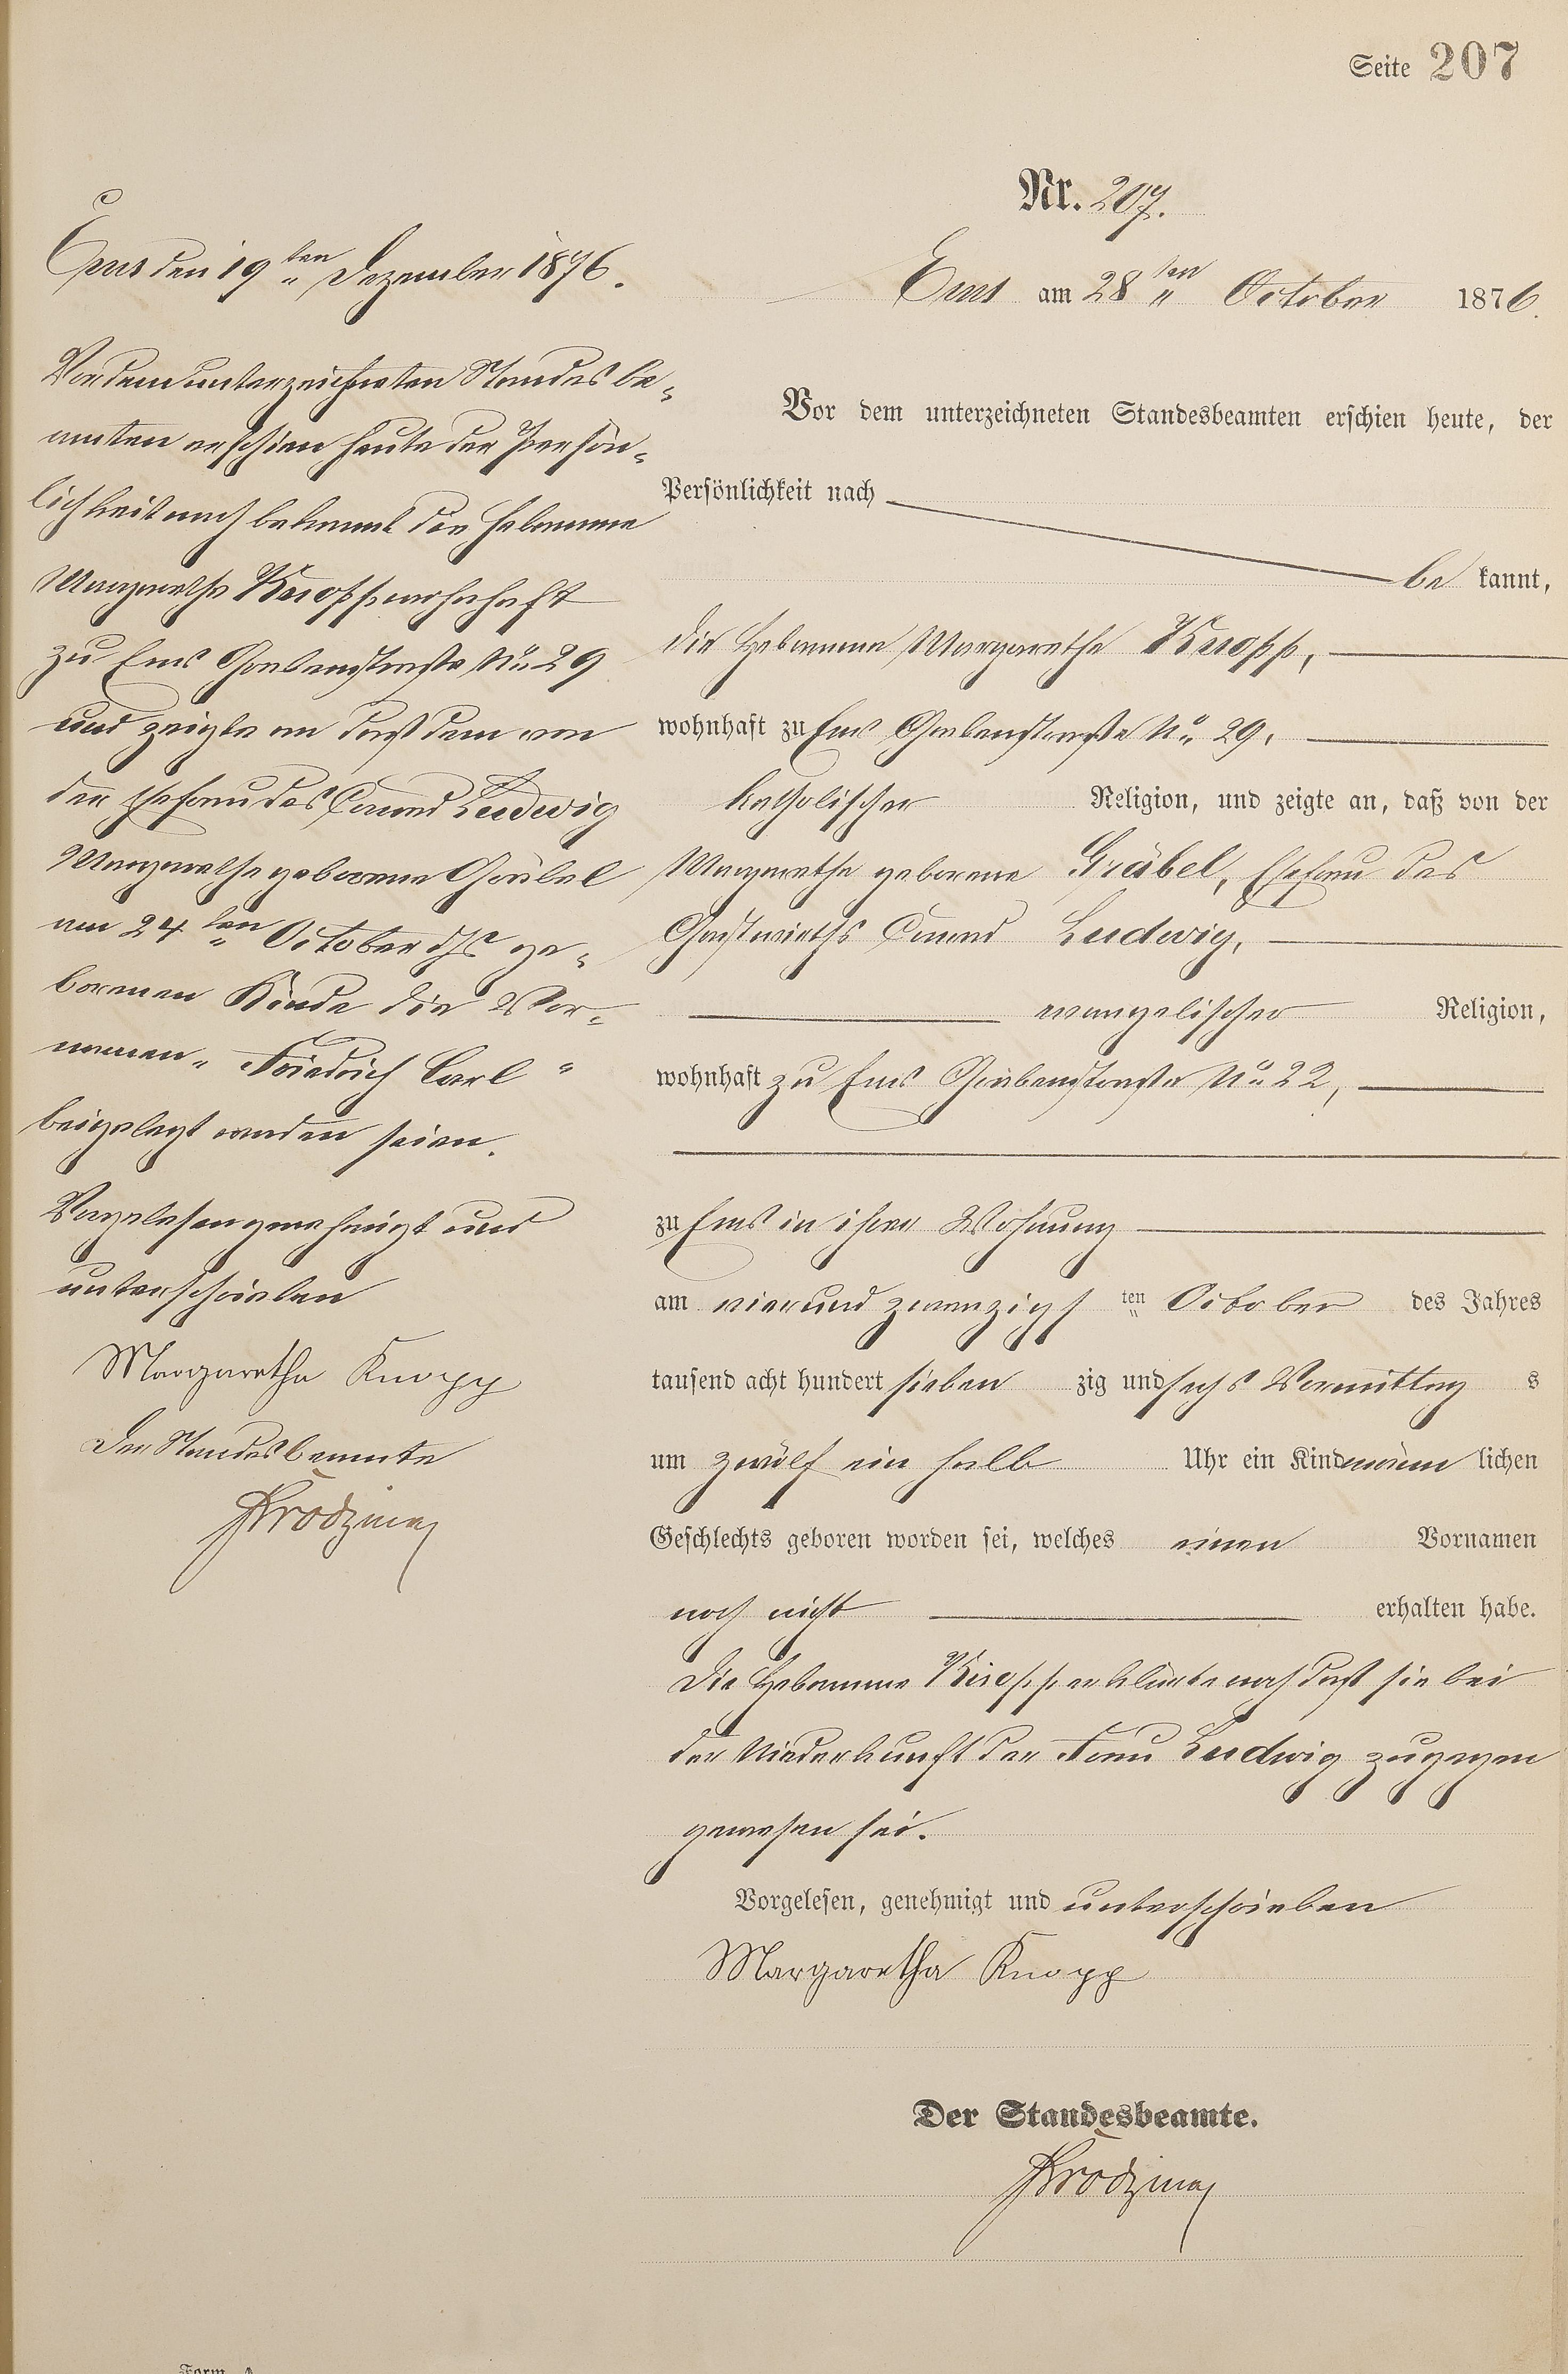 Seite 207
Nr. 207.
Ems am 28ten October 1876.
Vor dem unterzeichneten Standesbeamten erschien heute, der
Persönlichkeit nach
be kannt,
die Hebamme Margarethe Knopp,
wohnhaft zu Ems Grabenstraße No 29,
katholischer Religion, und zeigte an, daß von der
Margarethe geborene Gräbel, Ehefrau des
Gastwirths Conrad Ludwig,
evangelischer Religion,
wohnhaft zu Ems Grabenstraße No 22,
zu Ems in ihrer Wohnung
am vierundzwanzigs ten October des Jahres
tausend acht hundert sieben zig und sechs Vormittag s
um zwölf ein halb Uhr ein Kind männ lichen
Geschlechts geboren worden sei, welches einen Vornamen
noch nicht erhalten habe.
Die Hebamme Knopp erklärte noch daß sie bei
der Niederkunft der Frau Ludwig zugegen
gewesen sei.
Vorgelesen, genehmigt und unterschrieben
Margaretha Knopp
Der Standesbeamte.
Ems den 19ten Dezember 1876.
Vor dem unterzeichneten Standesbe-
amten erschien heute der Persön-
lichkeit nach bekannt die Hebamme
Margarethe Knopp wohnhaft
zu Ems Grabenstraße No 29
und zeigte an daß dem von
der Ehefrau des Conrad Ludwig
Margarethe geborene Gräbel
am 24ten October ds ge-
borenen Kinde die Vor-
namen "Friedrich Carl"
beigelegt worden seien.
Vorgelesen genehmigt und
unterschrieben
Margaretha Knopp
Der Standesbeamte
Form. A